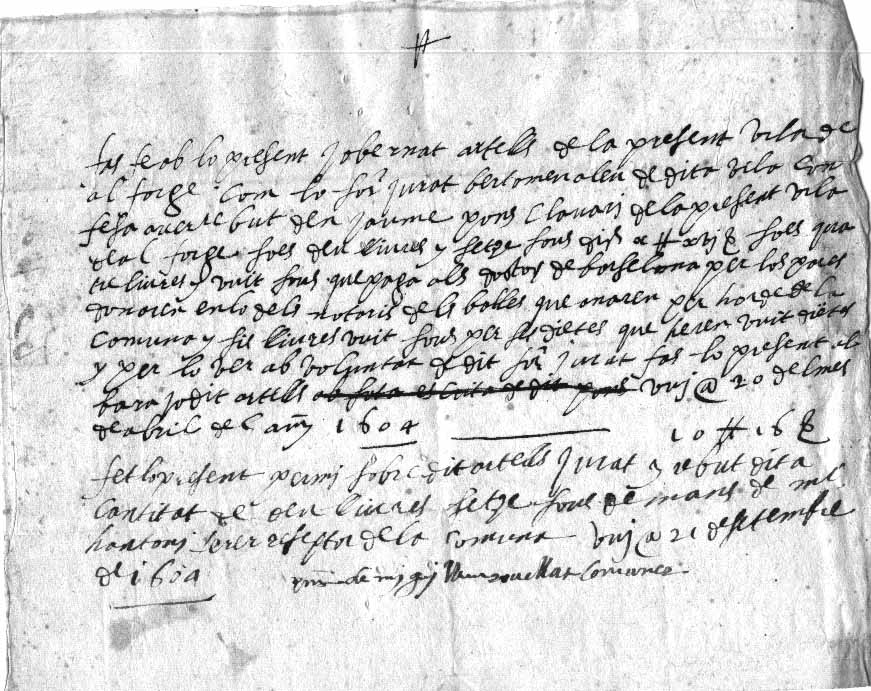 fas fe ab lo present yo bernat artells de la present vila de
alforge com lo sor jurat bertomeu aleu de dita vila con
fesa aver rebut den jaume pons clavari de la present vila
de alforge soes deu lliures y setze sous dich x ll xvi s soes qua
tre lliures y vuit sous que paga als doctos de barselona per los pares
donaren en lo dels notaris dels balles que anaren per horde de la
comuna y sis lliures vuit sous per sis dietes que heren vuit dietes
y per lo ver ab voluntat de dit sor jurat fas lo present al
bara yo dit artells ab sota escrita de dit pons vuy @ 20 del mes
de abril del any 1604
10 ll 16 s
fet lo present per mi sobre dit artells jurat y rebut dita
cantitat de deu lliures setze sous de mans de mi
hantoni ferrer reseptor de la comuna vuy @ 21 de setembre
de 1604
de my